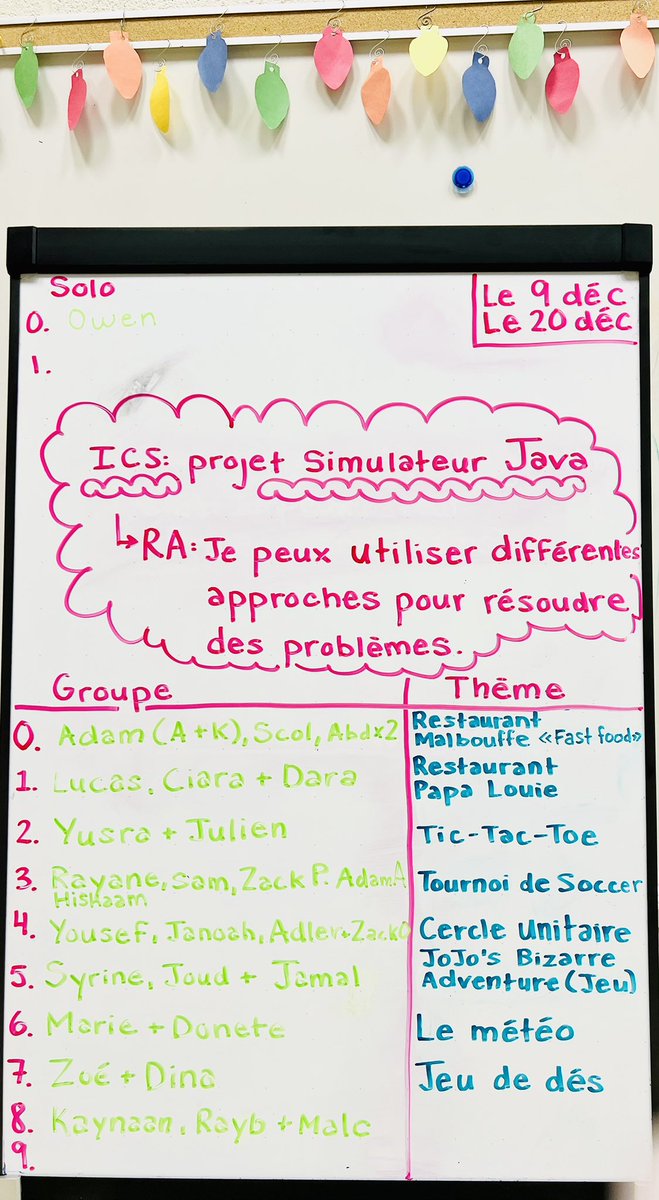 Solo
0. Owen
1.
Le 9 déc
Le 20 déc
ICS: projet Simulateur Java
↳RA: Je peux utiliser différentes
approches pour résoudre
des problèmes.
Groupe Thème
0. Adam (A+K), Scol, Abdx2 Restaurant
Malbouffe «Fast food»
1. Lucas, Ciara + Dara Restaurant
Papa Louie
2. Yusra + Julien Tic-Tac-Toe
3. Rayane, Sam, Zack P. Adam A Tournoi de Soccer
Hishaam
4. Yousef, Janoah, Adler+Zack O Cercle unitaire
5. Syrine, Joud + Jamal JoJo's Bizarre
Adventure (Jeu)
6. Marie + Donete Le météo
7. Zoé + Dina Jeu de dés
8. Kaynaan, Rayb + Malc
9.